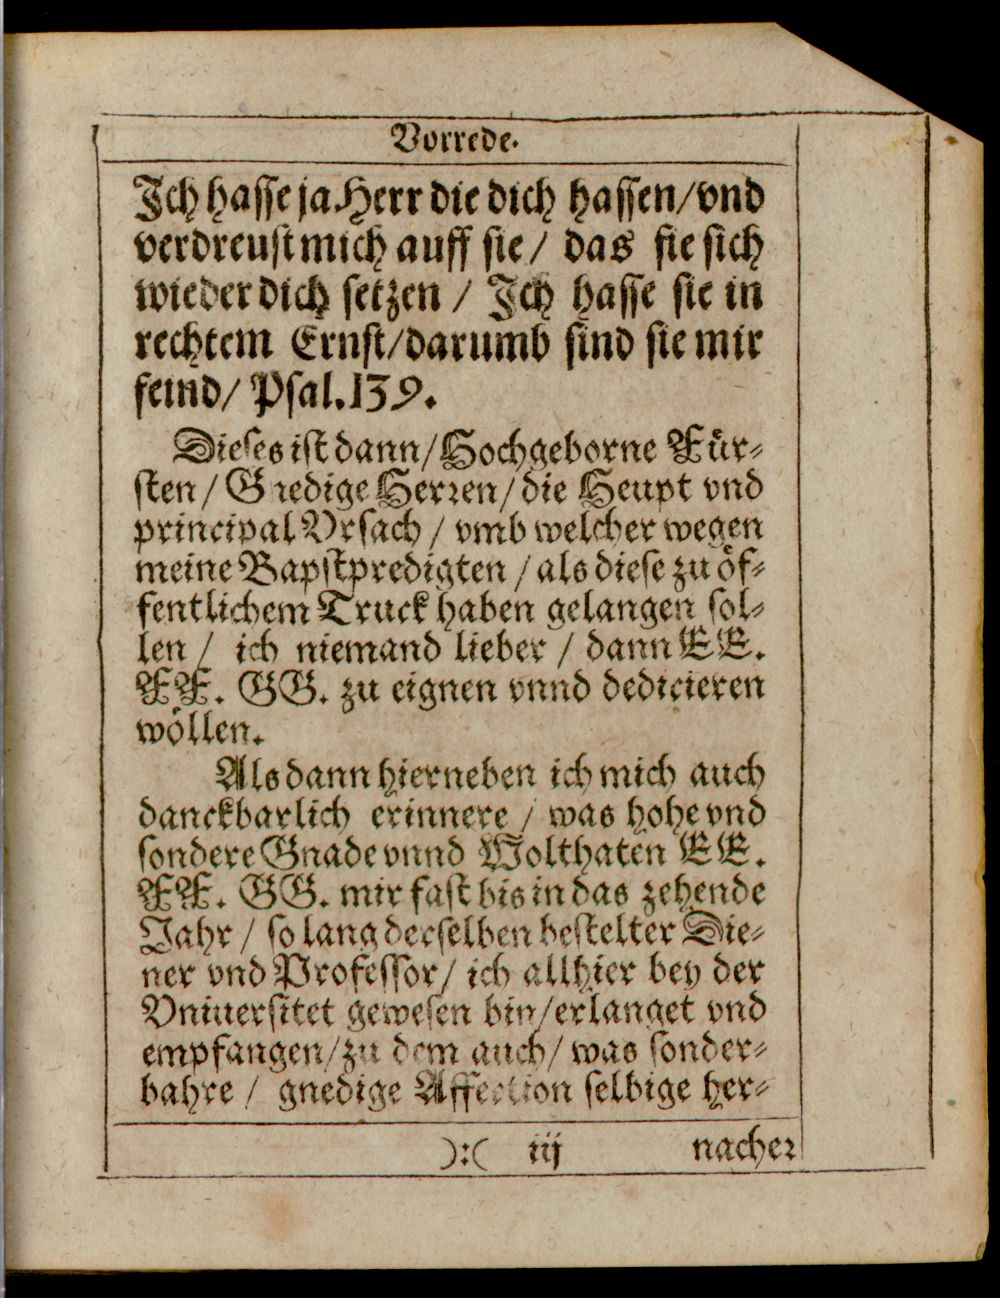 Vorrede.
Ich hasse ja Herr die dich hassen/vnd
verdreust mich auff sie/ das sie sich
wieder dich setzen / Ich hasse sie in
rechtem Ernst/darumb sind sie mir
feind/ Psal.139.
Dieses ist dann/Hochgeborne Für-
sten/Gnedige Herren/die Heupt vnd
principal Vrsach / vmb welcher wegen
meine Bapstpredigten / als diese zu öf-
fentlichem Truck haben gelangen sol-
len / ich niemand lieber / dann EE.
FF. GG. zu eignen vnnd dedicieren
wöllen.
Als dann hierneben ich mich auch
danckbarlich erinnere / was hohe vnd
sondere Gnade vnnd Wolthaten EE.
FF. GG. mir fast bis in das zehende
Jahr / so lang derselben bestelter Die-
ner vnd Professor/ ich allhier bey der
Vniuersitet gewesen bin/erlanget vnd
empfangen/zu dem auch/ was sonder-
bahre / gnedige Affection selbige her-
):( iij nacher